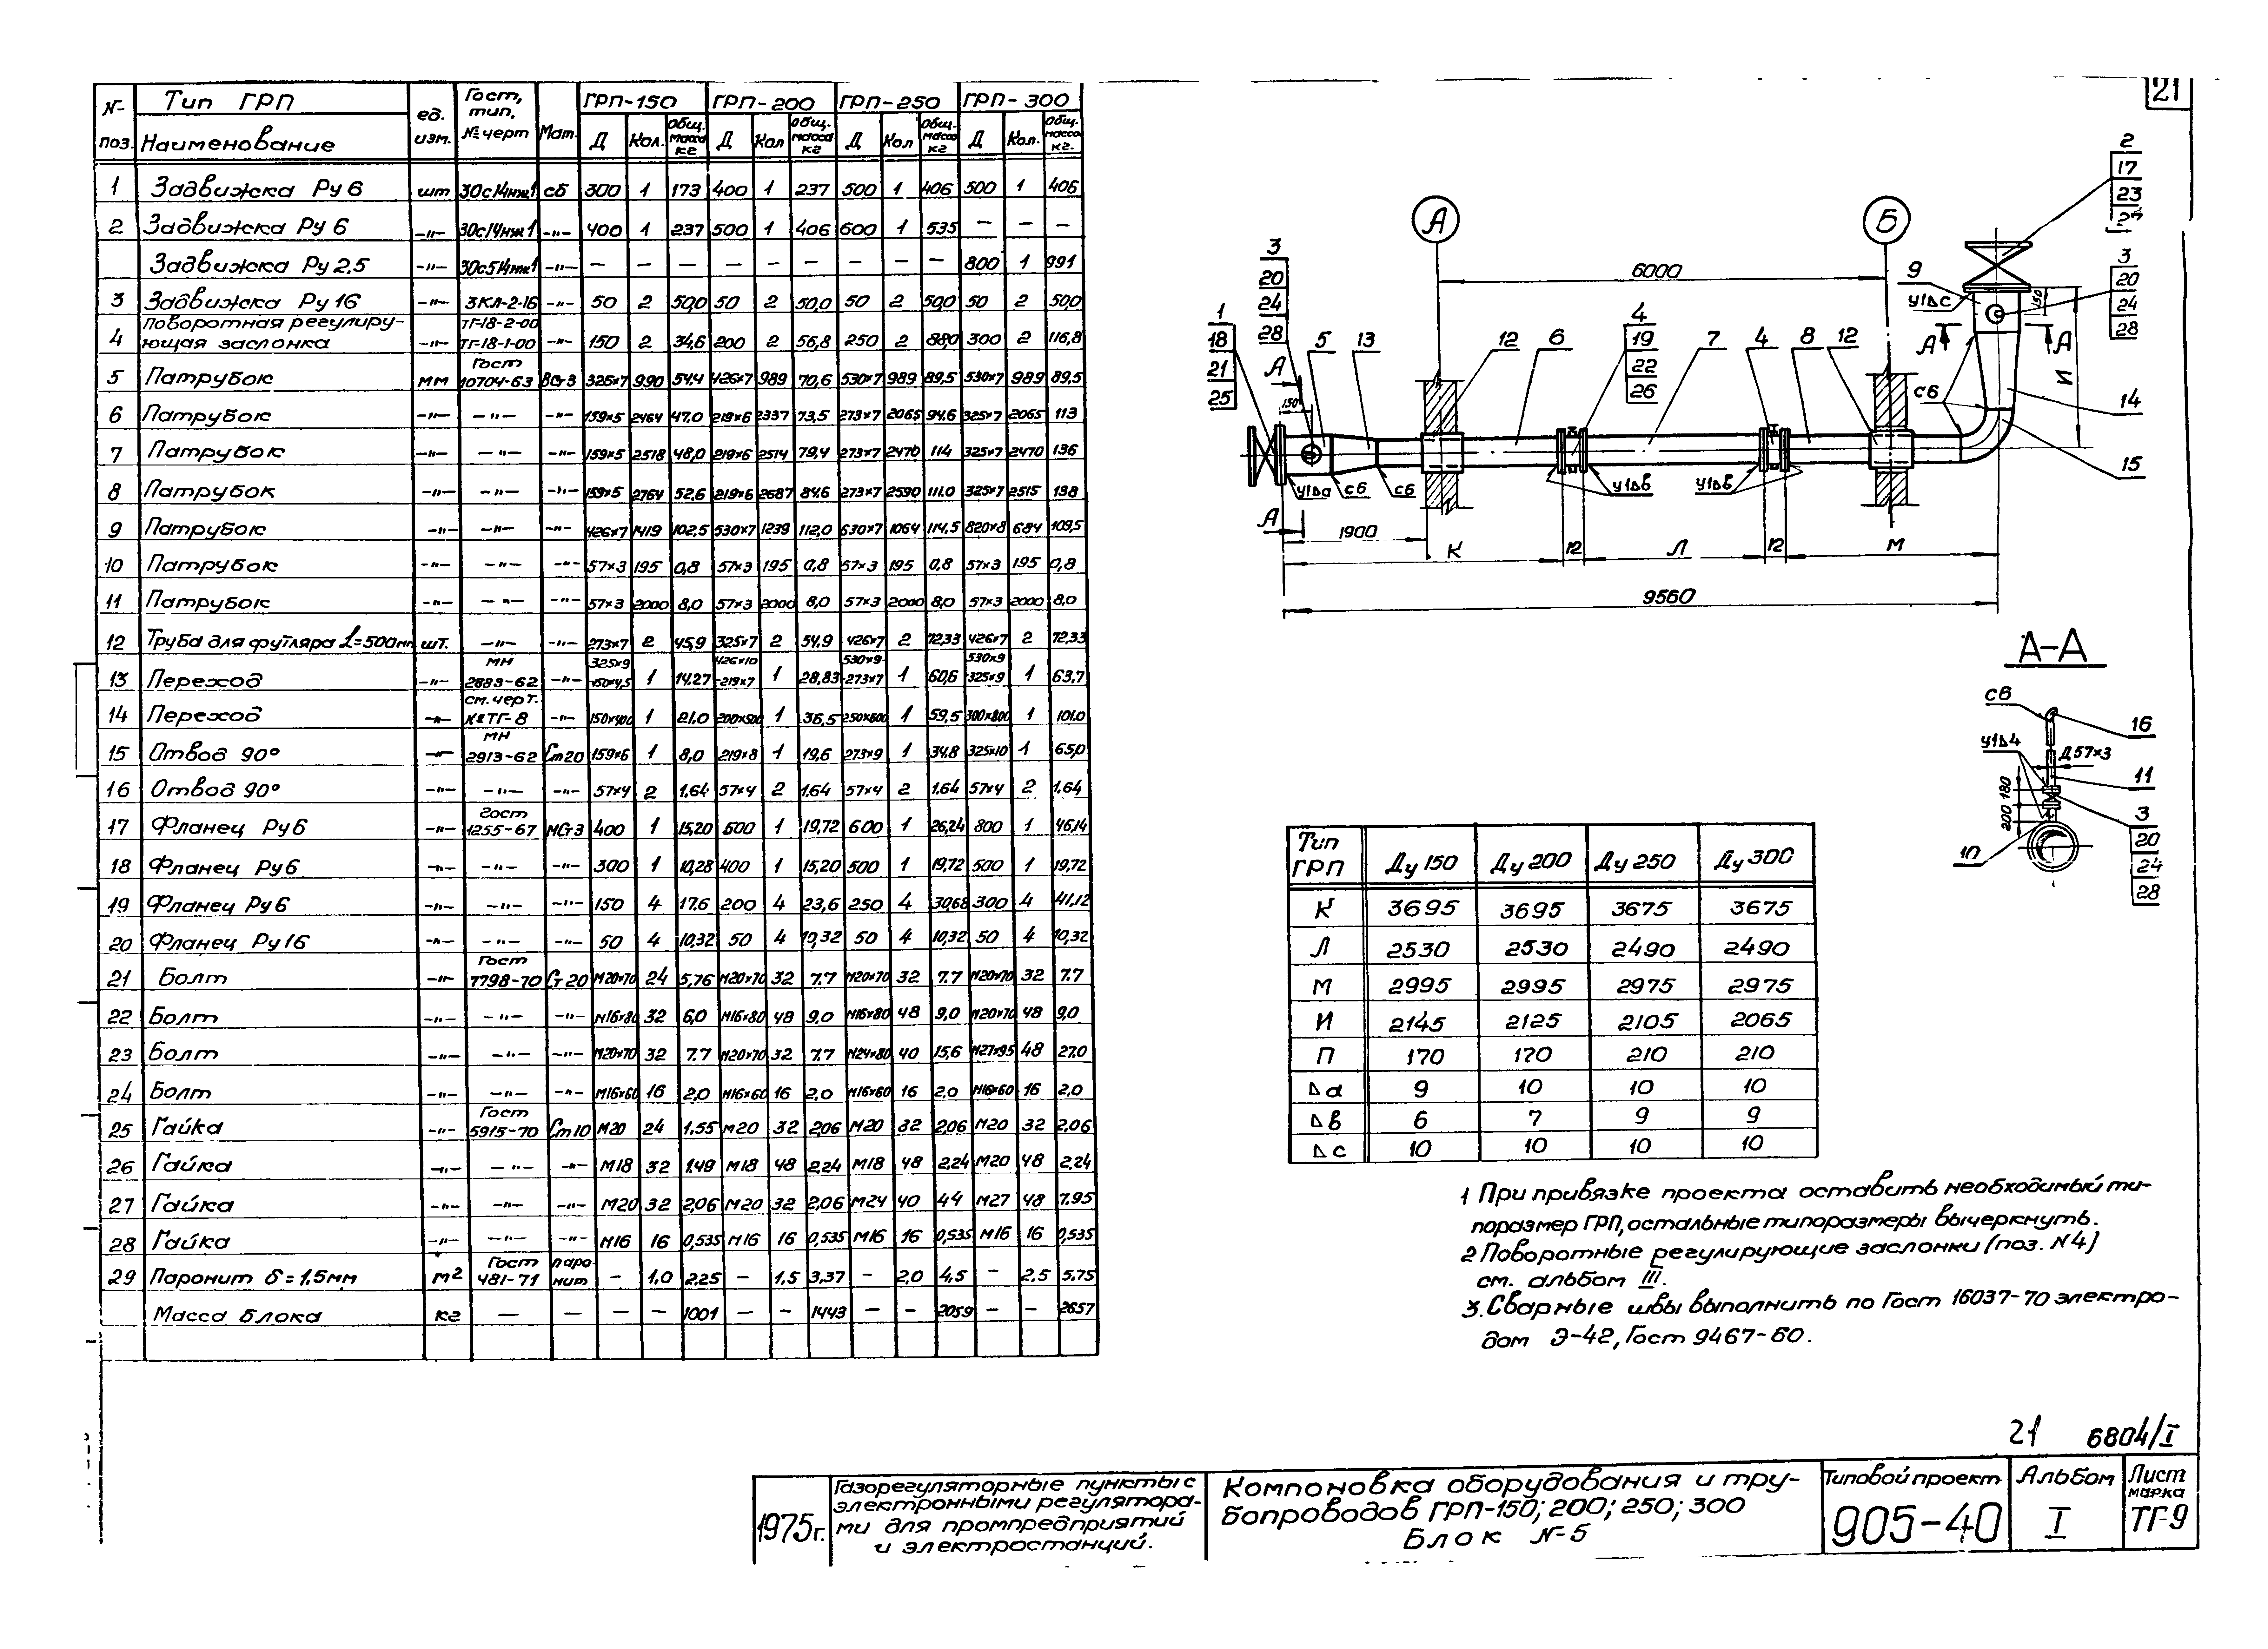 21
№ поз. | Тип ГРП Наименование | ед. изм. | Гост, тип, № черт | Мат. | ГРП-150 | ГРП-200 | ГРП-250 | ГРП-300
Д | Кол. | Общ. масса кг | Д | Кол | Общ. масса кг | Д | Кол | Общ. масса кг | Д | Кол. | Общ. масса кг.
1 Задвижка Ру 6 шт 30с14нж1 сб 300 1 173 400 1 237 500 1 406 500 1 406
2 Задвижка Ру 6 -"- 30с14нж1 -"- 400 1 237 500 1 406 600 1 535 — — —
Задвижка Ру 2.5 -"- 30с514нж1 -"- — — — — — — — — — 800 1 991
3 Задвижка Ру 16 -"- ЗКЛ-2-16 -"- 50 2 50,0 50 2 50,0 50 2 50,0 50 2 50,0
4 Поворотная регулиру-
ющая заслонка -"- ТГ-18-2-00 ТГ-18-1-00 -"- 150 2 34,6 200 2 56,8 250 2 88,0 300 2 116,8
5 Патрубок мм Гост 10704-63 ВСт3 325×7 990 54,4 426×7 989 70,6 530×7 989 89,5 530×7 989 89,5
6 Патрубок -"- -"- -"- 159×5 2464 47,0 219×6 2337 73,5 273×7 2065 94,6 325×7 2065 113
7 Патрубок -"- -"- -"- 159×5 2518 48,0 219×6 2514 79,4 273×7 2470 114 325×7 2470 136
8 Патрубок -"- -"- -"- 159×5 2764 52,6 219×6 2687 84,6 273×7 2590 111.0 325×7 2515 138
9 Патрубок -"- -"- -"- 426×7 1419 102,5 530×7 1239 112,0 630×7 1064 114,5 820×8 684 109,5
10 Патрубок -"- -"- -"- 57×3 195 0,8 57×3 195 0,8 57×3 195 0,8 57×3 195 0,8
11 Патрубок -"- -"- -"- 57×3 2000 8,0 57×3 2000 8,0 57×3 2000 8,0 57×3 2000 8,0
12 Труба для футляра L=500мм шт. -"- -"- 273×7 2 45,9 325×7 2 54,9 426×7 2 72,33 426×7 2 72,33
13 Переход -"- МН 2883-62 -"- 325×9 -150×4,5 1 14,27 426×10 -219×7 1 28,83 530×9- -273×7 1 60,6 530×9 -325×9 1 63,7
14 Переход -"- см. черт. №ТГ-8 -"- 150×400 1 21.0 200×500 1 36,5 250×600 1 59,5 300×800 1 101.0
15 Отвод 90° -"- МН 2913-62 Ст20 159×6 1 8,0 219×8 1 19,6 273×9 1 34,8 325×10 1 65,0
16 Отвод 90° -"- -"- -"- 57×4 2 1,64 57×4 2 1,64 57×4 2 1,64 57×4 2 1,64
17 Фланец Ру6 -"- Гост 1255-67 МСт3 400 1 15,20 500 1 19,72 600 1 26,24 800 1 46,14
18 Фланец Ру6 -"- -"- -"- 300 1 10,28 400 1 15,20 500 1 19,72 500 1 19,72
19 Фланец Ру6 -"- -"- -"- 150 4 17.6 200 4 23,6 250 4 30,68 300 4 41,12
20 Фланец Ру16 -"- -"- -"- 50 4 10,32 50 4 10,32 50 4 10,32 50 4 10,32
21 Болт -"- Гост 7798-70 Ст20 М20×70 24 5,76 М20×70 32 7.7 М20×70 32 7.7 М20×70 32 7.7
22 Болт -"- -"- -"- М16×80 32 6,0 М16×80 48 9,0 М16×80 48 9,0 М20×70 48 9,0
23 Болт -"- -"- -"- М20×70 32 7.7 М20×70 32 7,7 М24×80 40 15,6 М27×95 48 27.0
24 Болт -"- -"- -"- М16×60 16 2,0 М16×60 16 2,0 М16×60 16 2,0 М16×60 16 2,0
25 Гайка -"- Гост 5915-70 Ст10 М20 24 1,55 М20 32 2,06 М20 32 2,06 М20 32 2,06
26 Гайка -"- -"- -"- М18 32 1,49 М18 48 2,24 М18 48 2,24 М20 48 2,24
27 Гайка -"- -"- -"- М20 32 2,06 М20 32 2,06 М24 40 4.4 М27 48 7.95
28 Гайка -"- -"- -"- М16 16 0,535 М16 16 0,535 М16 16 0,535 М16 16 0,535
29 Паронит δ=1,5мм м² Гост 481-71 паро-нит — 1,0 2,25 — 1,5 3,37 — 2,0 4,5 — 2,5 5,75
Масса блока кг — — — — 1001 — — 1443 — — 2059 — — 2657
А
Б
6000
2
17
23
3
20
24
28
1
18
21
25
3
20
24
28
5
13
12
6
4
19
22
26
7
4
8
12
9
У1Δс
150
А
А
И
с6
14
15
А
150
У1Δа
с6
с6
У1Δв
У1Δв
А
1900
К
12
Л
12
М
9560
А-А
с6
16
У1Δ4
Д57×3
11
180
200
3
20
24
28
10
Тип ГРП | Ду 150 | Ду 200 | Ду 250 | Ду 300
К 3695 3695 3675 3675
Л 2530 2530 2490 2490
М 2995 2995 2975 2975
И 2145 2125 2105 2065
П 170 170 210 210
Δа 9 10 10 10
Δв 6 7 9 9
Δс 10 10 10 10
1 При привязке проекта оставить необходимый ти-
поразмер ГРП, остальные типоразмеры вычеркнуть.
2 Поворотные регулирующие заслонки (поз. №4)
см. альбом III.
3. Сварные швы выполнить по Гост 16037-70 электро-
дом Э-42, Гост 9467-60.
21 6804/I
1975г.
Газорегуляторные пункты с
электронными регулятора-
ми для промпредприятий
и электростанций.
Компоновка оборудования и тру-
бопроводов ГРП-150; 200; 250; 300
Блок №5
Типовой проект
905-40
Альбом
I
Лист
марка
ТГ-9